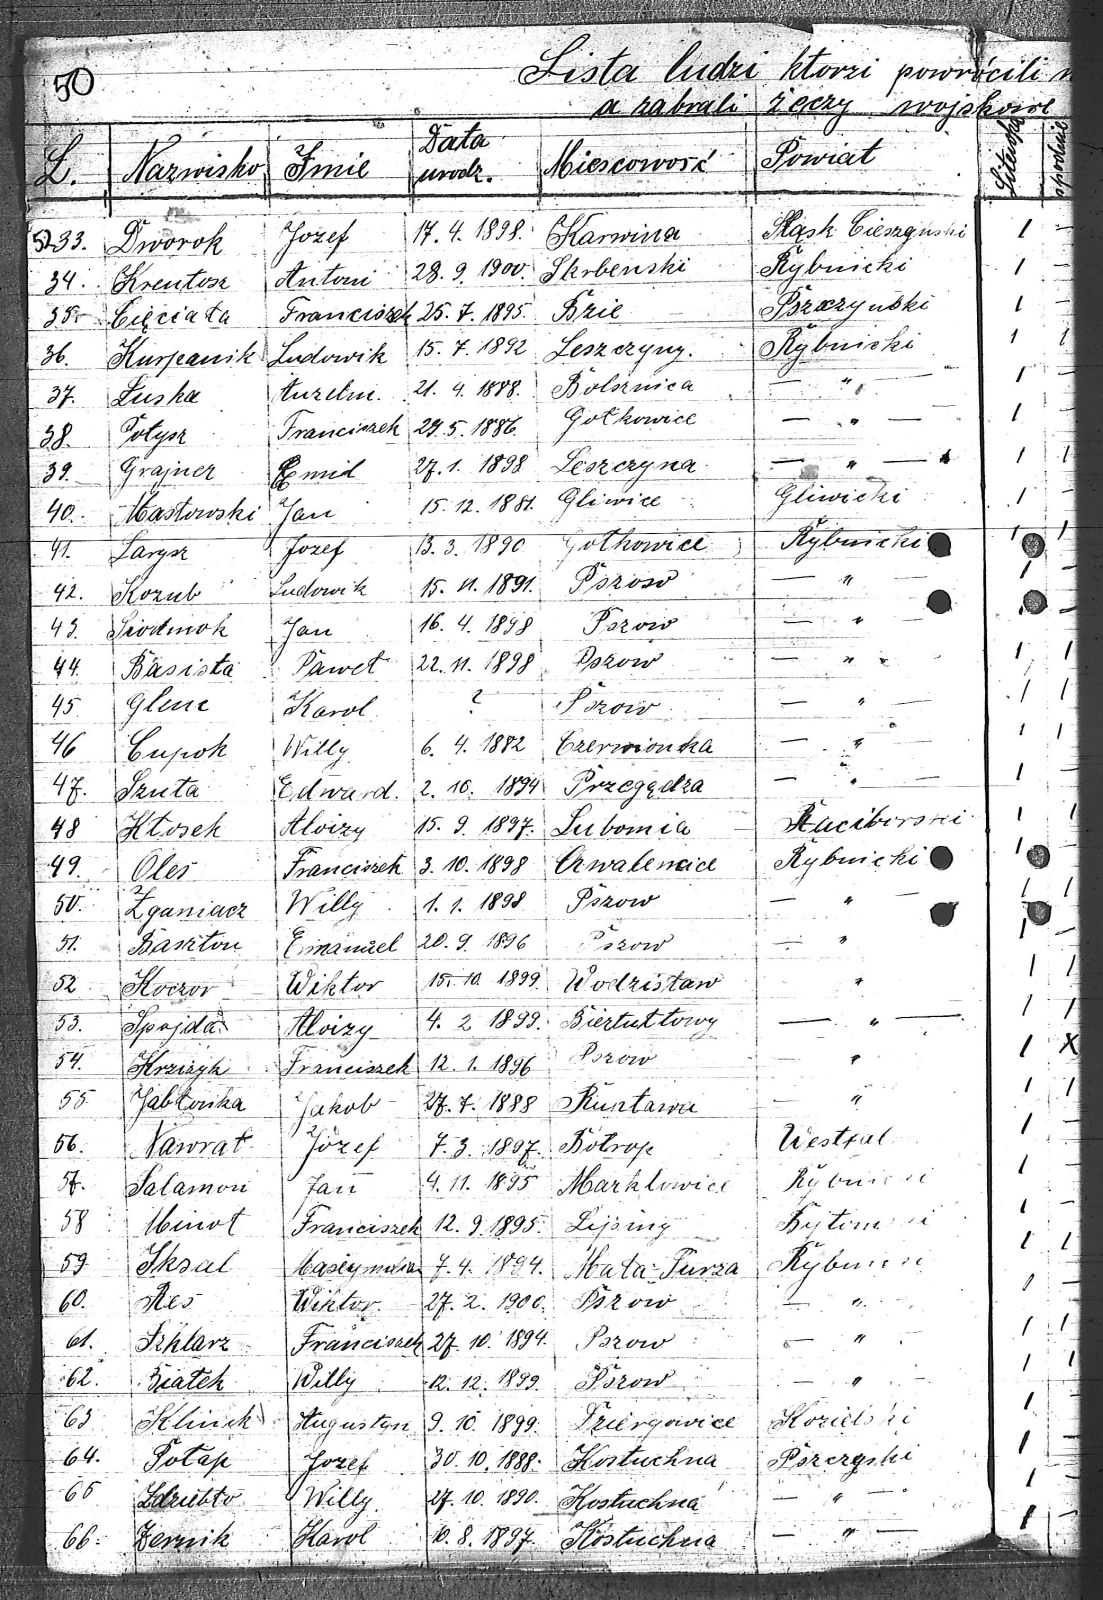 50
Lista ludzi ktorzi powrócili
a zabrali żeczy wojskowe
L. Nazwisko Imie Data urodz. Miescowość Powiat Litewka spodnie
5233. Dworok Jozef 17. 4. 1898. Karwina Sląsk Cieszynski 1 –
34. Kreutosz Antoni 28. 9. 1900. Skrbenski Rybnicki 1 –
35. Cięciała Franciszek 25. 7. 1895. Bzie – Pszczynski 1 –
36. Kurpanik Ludowik 15. 7. 1892 Leszczyny. Rybnicki 1 1
37. Luska 21. 4. 1888. – " – 1 –
38. Potysz Franciszek 29. 5. 1886. Gotkowice – " – 1 –
39. Grajner Emid 27. 1. 1898 Leszczyna – " – 1 1
40. Masłowski Jan 15. 12. 1881. Gliwice Gliwicki 1 –
41. Larysz Jozef 13. 3. 1890 Gotkowice Rybnicki 1 1
42. Kozub Ludowik 15. 11. 1891. – " – 1 –
43. Siodmok Jan 16. 4. 1898 Pszow – " – 1 –
44. Basista Paweł 22. 11. 1898 Pszow – " " 1 1
45 Glenc Karol ? Pszow – " – 1 1
46 Cupok Willy 6. 4. 1882 Czerwionka – " – 1 1
47. Szuta Edward. 2. 10. 1894 Przegędza – " – 1 –
48 Kłosek Aloizy 15. 9. 1897. Lubomia Raciborski 1 1
49. Oles Franciszek 3. 10. 1898 Rybnicki 1 –
50. Zganiacz Willy 1. 1. 1898 Pszow – " – 1 1
51. Baszton Emanuel 20. 9. 1896 Pszow – " 1 –
52 Koczor Wiktor 15. 10. 1899. Wodzisław " 1 1
53. Spojda Aloizy 4. 2 1899. Biertułtowy – " – 1 1
54. Krziżyk Franciszek 12. 1. 1896 Pszow – " 1 X
55 Jabłonka Jakob 27. 7. 1888 – " 1 1
56. Nawrat Józef 7. 3. 1897. Botrop Westfal 1 –
57. Salamon Jan 4. 11. 1895 Marklowice 1 –
58 Minot Franciszek 12. 9. 1895. Lipiny 1 –
59 Iksal 7. 4. 1894. Mała-Turza 1 1
60. Res Wiktor 27. 2. 1900. Pszow – " – 1 –
61. Szklarz Franciszek 27. 10. 1894. Pszow – " – 1 1
62. Białek Willy 12. 12. 1899. Pszow – " – 1 1
63 Augustyn 9. 10. 1899. Dziergowice Kozielski 1 –
64. Potap Jozef 30. 10. 1888. Kostuchna Pszczynski 1 –
65 Zdziebło Willy 27. 10. 1890. Kostuchna – " – 1 –
66. Żernik Karol 10. 8. 1897. Kostuchna – " – 1 –